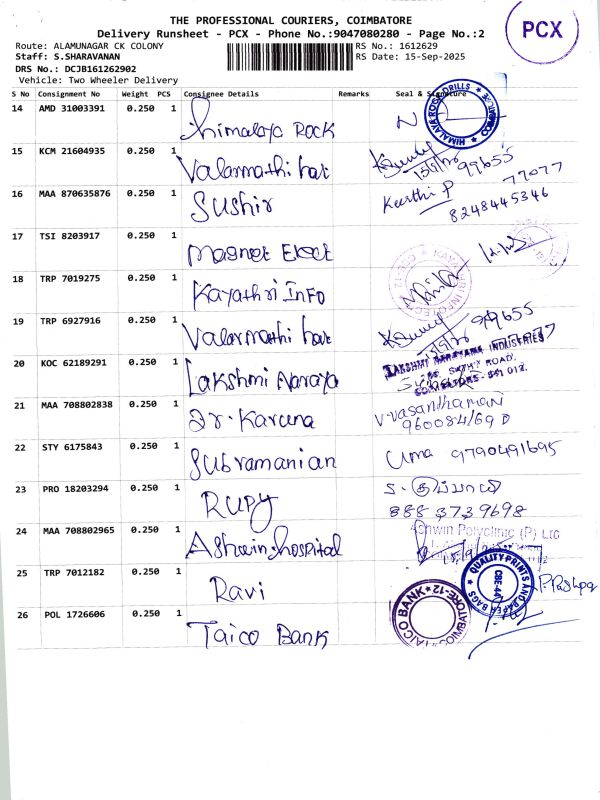 THE PROFESSIONAL COURIERS, COIMBATORE
Delivery Runsheet - PCX - Phone No.:9047080280 - Page No.:2
PCX
Route: ALAMUNAGAR CK COLONY
RS No.: 1612629
Staff: S.SHARAVANAN
RS Date: 15-Sep-2025
DRS No.: DCJB161262902
Vehicle: Two Wheeler Delivery
S No Consignment No Weight PCS Consignee Details Remarks Seal & Signature
14 AMD 31003391 0.250 1 Himalaya Rock HIMALAYA ROCK DRILLS
15 KCM 21604935 0.250 1 Valarmathi har 99655
77077
16 MAA 870635876 0.250 1 Sushir Keerthi P
8248445346
17 TSI 8203917 0.250 1 Magnet Elect
18 TRP 7019275 0.250 1 Kayathri Info
19 TRP 6927916 0.250 1 Valarmathi har 99655
77077
20 KOC 62189291 0.250 1 Lakshmi Naraya LAKSHMI NARAYANA INDUSTRIES
COIMBATORE - 641 012.
21 MAA 708802838 0.250 1 Dr. Karuna V. Vasanthamani
22 STY 6175843 0.250 1 Subramanian Uma 9790491695
23 PRO 18203294 0.250 1 Rupy
888 373 9698
24 MAA 708802965 0.250 1 Ashwin hospital Ashwin Polyclinic (P) Ltd
25 TRP 7012182 0.250 1 Ravi QUALITY PRINTS AND PAPER BAGS CBE-44 P. Pushpa
26 POL 1726606 0.250 1 Taico Bank TAICO BANK COIMBATORE-12